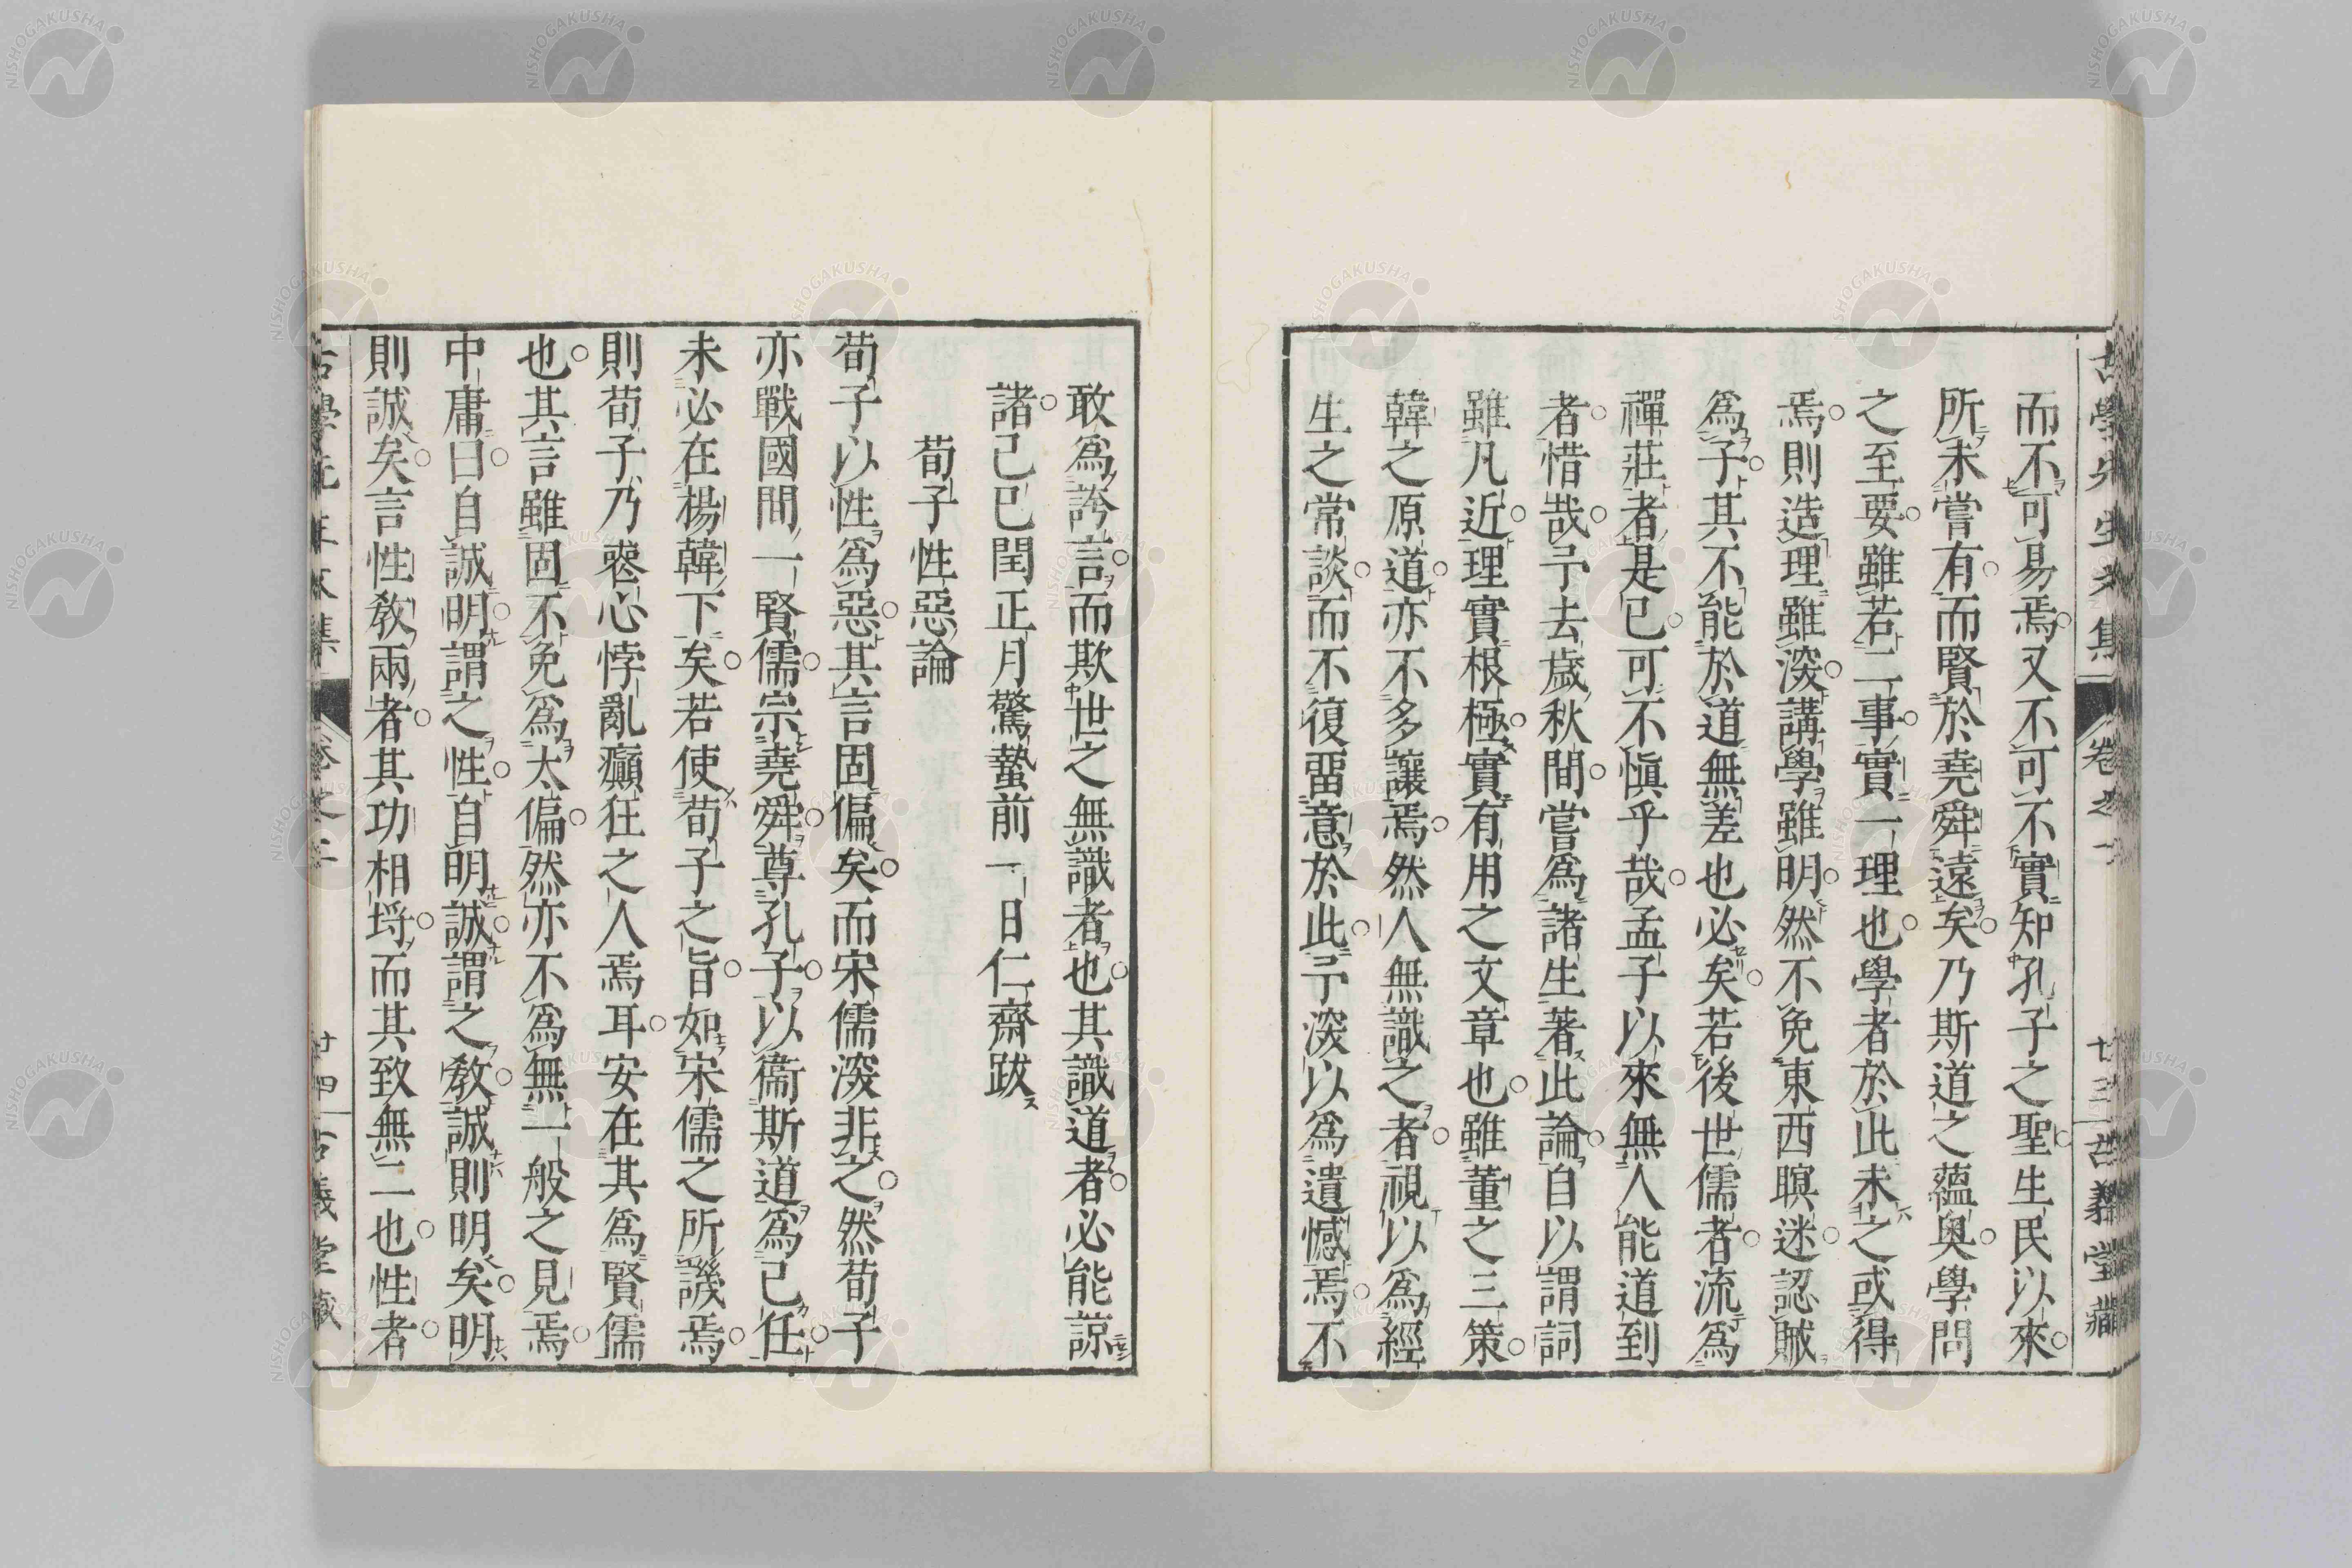 古學先生文集 卷之二 廿三 古義堂藏
而不可易焉又不可不實知孔子之聖生民以來
所未嘗有而賢於堯舜遠矣乃斯道之蘊奧學問
之至要雖若二事實一理也學者於此未之或得
焉則造理雖深講學雖明然不免東西瞑迷認賊
爲子其不能於道無差也必矣若後世儒者流爲
禪莊者是已可不愼乎哉孟子以來無人能道到
者惜哉予去歲秋間嘗爲諸生著此論自以謂詞
雖凡近理實根極實有用之文章也雖董之三策
韓之原道亦不多讓焉然人無識之者視以爲經
生之常談而不復畱意於此予深以爲遺憾焉不
敢爲誇言而欺世之無識者也其識道者必能諒
諸己巳閏正月驚蟄前一日仁齋跋
荀子性惡論
荀子以性爲惡其言固偏矣而宋儒深非之然荀子
亦戰國間一賢儒宗堯舜尊孔子以衞斯道爲己任
未必在楊韓下矣若使荀子之旨如宋儒之所譏焉
則荀子乃喪心悖亂癲狂之人焉耳安在其爲賢儒
也其言雖固不免爲太偏然亦不爲無一般之見焉
中庸曰自誠明謂之性自明誠謂之敎誠則明矣明
則誠矣言性敎兩者其功相埒而其致無二也性者
古學先生文集 卷之二 廿四 古義堂藏
NISHOGAKUSHA